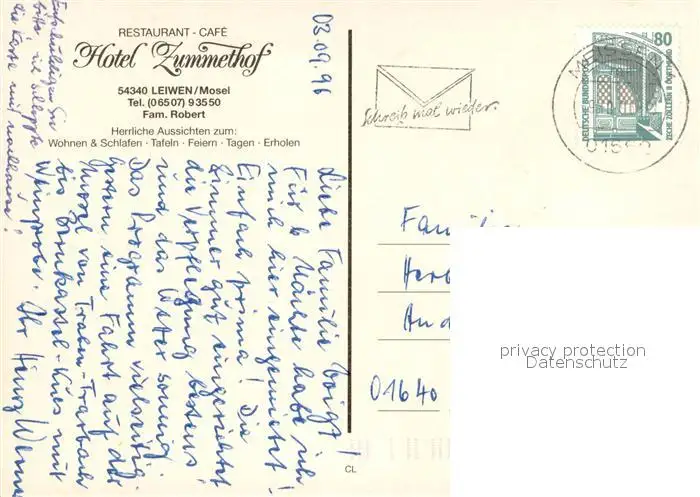 RESTAURANT - CAFÉ
Hotel Zummethof
54340 LEIWEN/Mosel
Tel. (06507) 93550
Fam. Robert
Herrliche Aussichten zum:
Wohnen & Schlafen · Tafeln · Feiern · Tagen · Erholen
03.09.96
Liebe Familie Voigt!
Für 6 Nächte habe ich
mich hier eingemietet
Einfach prima! Die
Zimmer gut eingerichtet
die Verpflegung bestens,
und das Wetter sonnig.
Das Programm vielseitig.
Gestern eine Fahrt auf der
Mosel von Traben-Trarbach
bis Bernkastel-Kues mit
Weinprobe. Ihr Heinz Werner
Entschuldigen Sie
bitte, ich schleppte
die Karte mit nachhause!
Schreib mal wieder.
80
DEUTSCHE BUNDESPOST
ZECHE ZOLLERN II DORTMUND
Fam
Her
And
01640
privacy protection
Datenschutz
CL